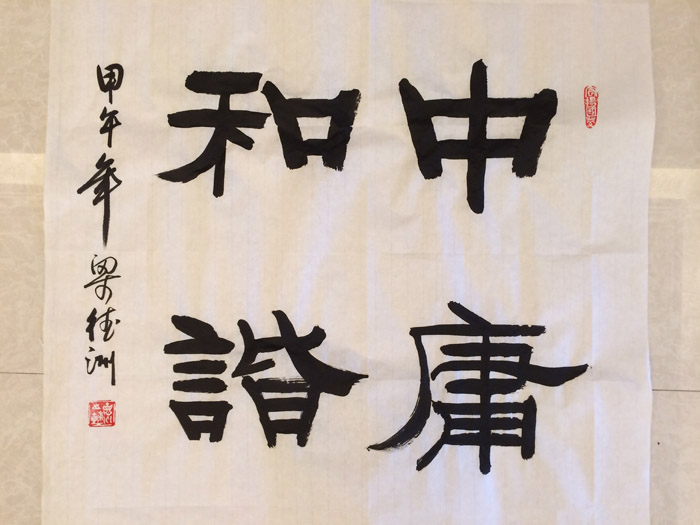 中庸
和諧
甲午年 梁德洲